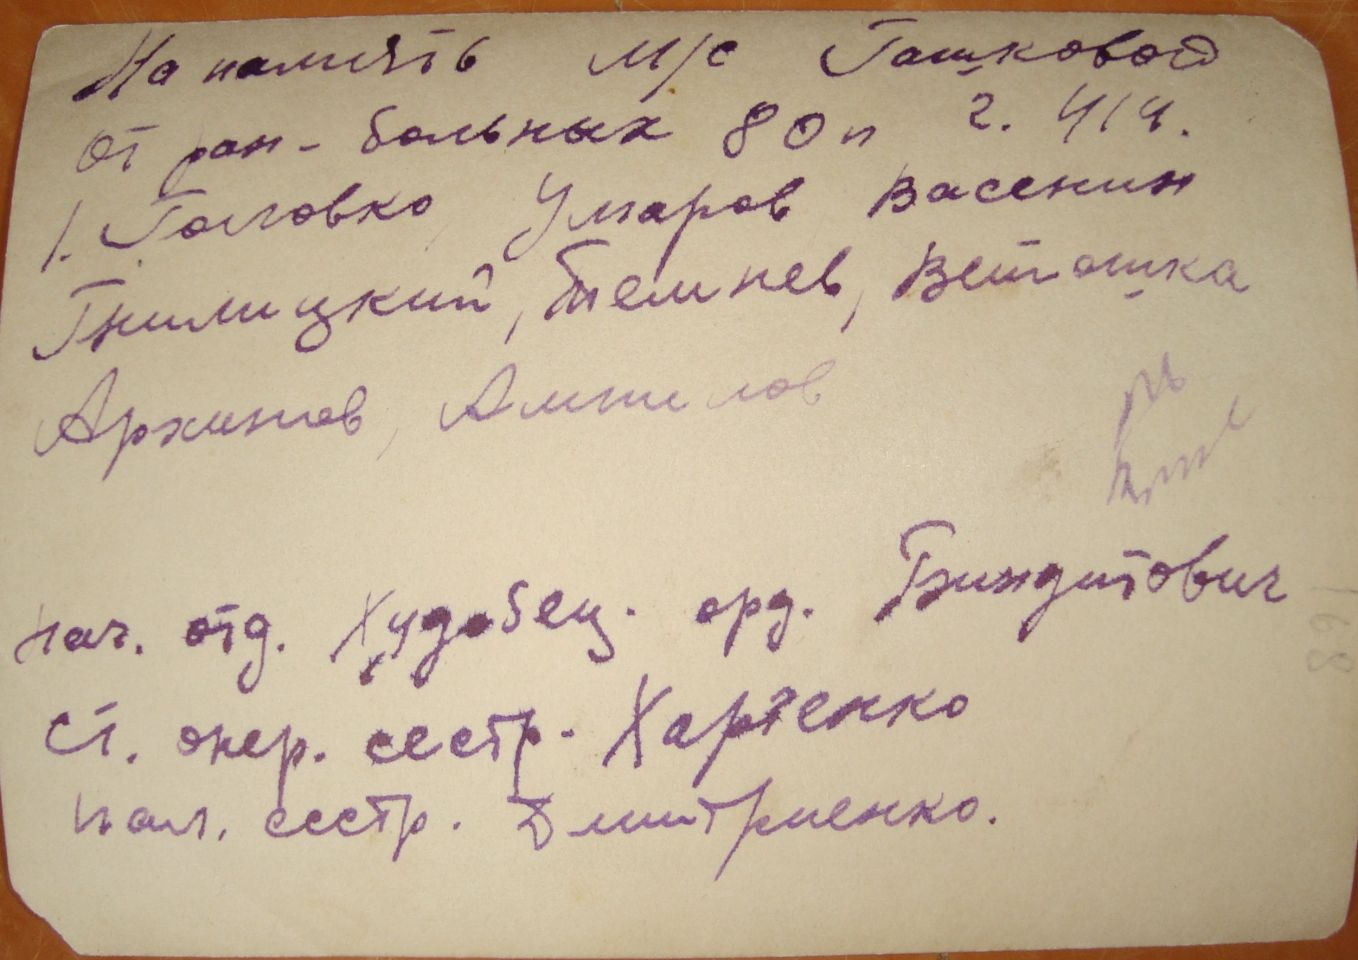 На память м/с Гашковой
от ран-больных 8 оп г. 414.
1. Головко, Умаров Васенин
Гнилицкий, Темнев, Ветошка
Архипов, Ампилов
нач. отд. Худобец. орд.
Ст. опер. сестр. Харченко
пал. сестр. Дмитриенко.
168